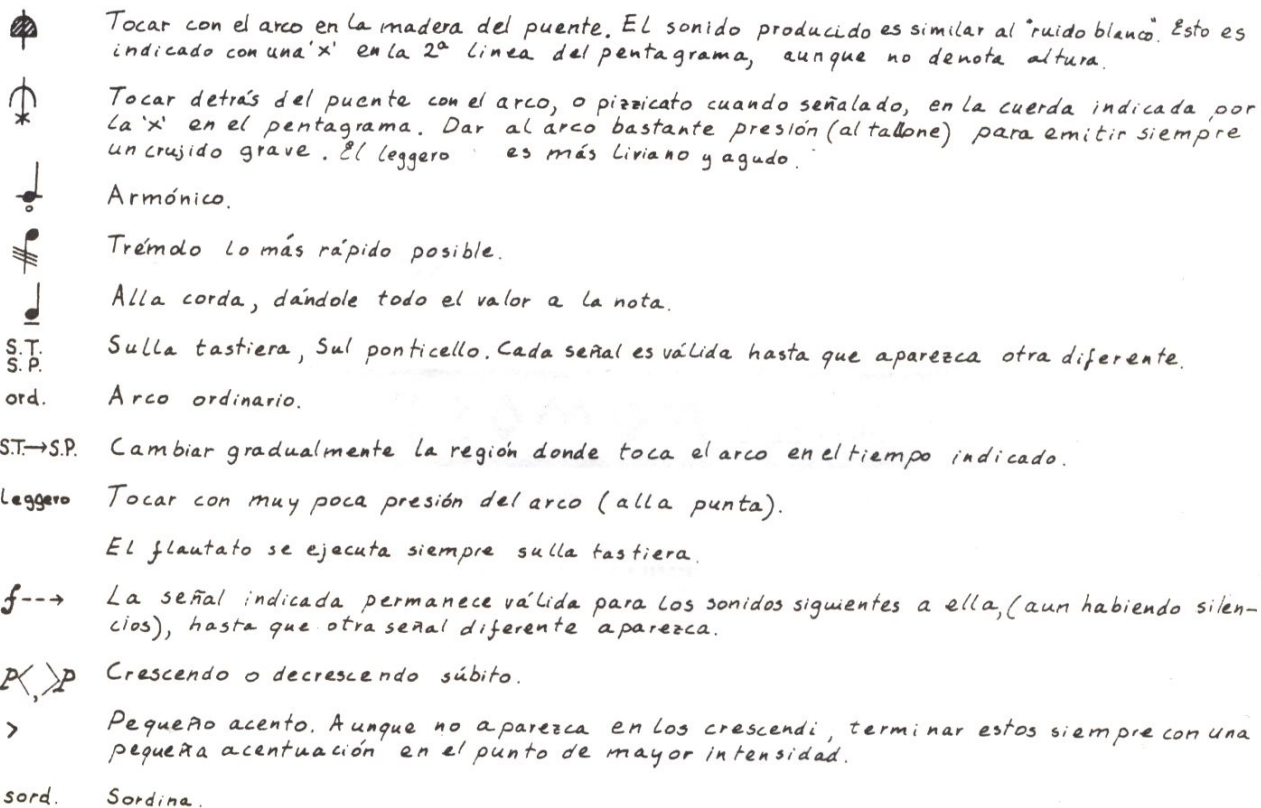 Tocar con el arco en la madera del puente. El sonido producido es similar al "ruido blanco". Esto es
indicado con una 'x' en la 2ª linea del pentagrama, aunque no denota altura.
Tocar detrás del puente con el arco, o pizzicato cuando señalado, en la cuerda indicada por
la 'x' en el pentagrama. Dar al arco bastante presión (al tallone) para emitir siempre
un crujido grave. El leggero es más liviano y agudo.
Armónico.
Trémolo lo más rápido posible.
Alla corda, dándole todo el valor a la nota.
S.T. Sulla tastiera, Sul ponticello. Cada señal es válida hasta que aparezca otra diferente.
S.P.
ord. Arco ordinario.
S.T.→S.P. Cambiar gradualmente la región donde toca el arco en el tiempo indicado.
Leggero Tocar con muy poca presión del arco (alla punta).
El flautato se ejecuta siempre sulla tastiera.
f---→ La señal indicada permanece válida para los sonidos siguientes a ella, (aun habiendo silen-
cios), hasta que otra señal diferente aparezca.
P<, >P Crescendo o decrescendo súbito.
> Pequeño acento. Aunque no aparezca en los crescendi, terminar estos siempre con una
pequeña acentuación en el punto de mayor intensidad.
sord. Sordina.